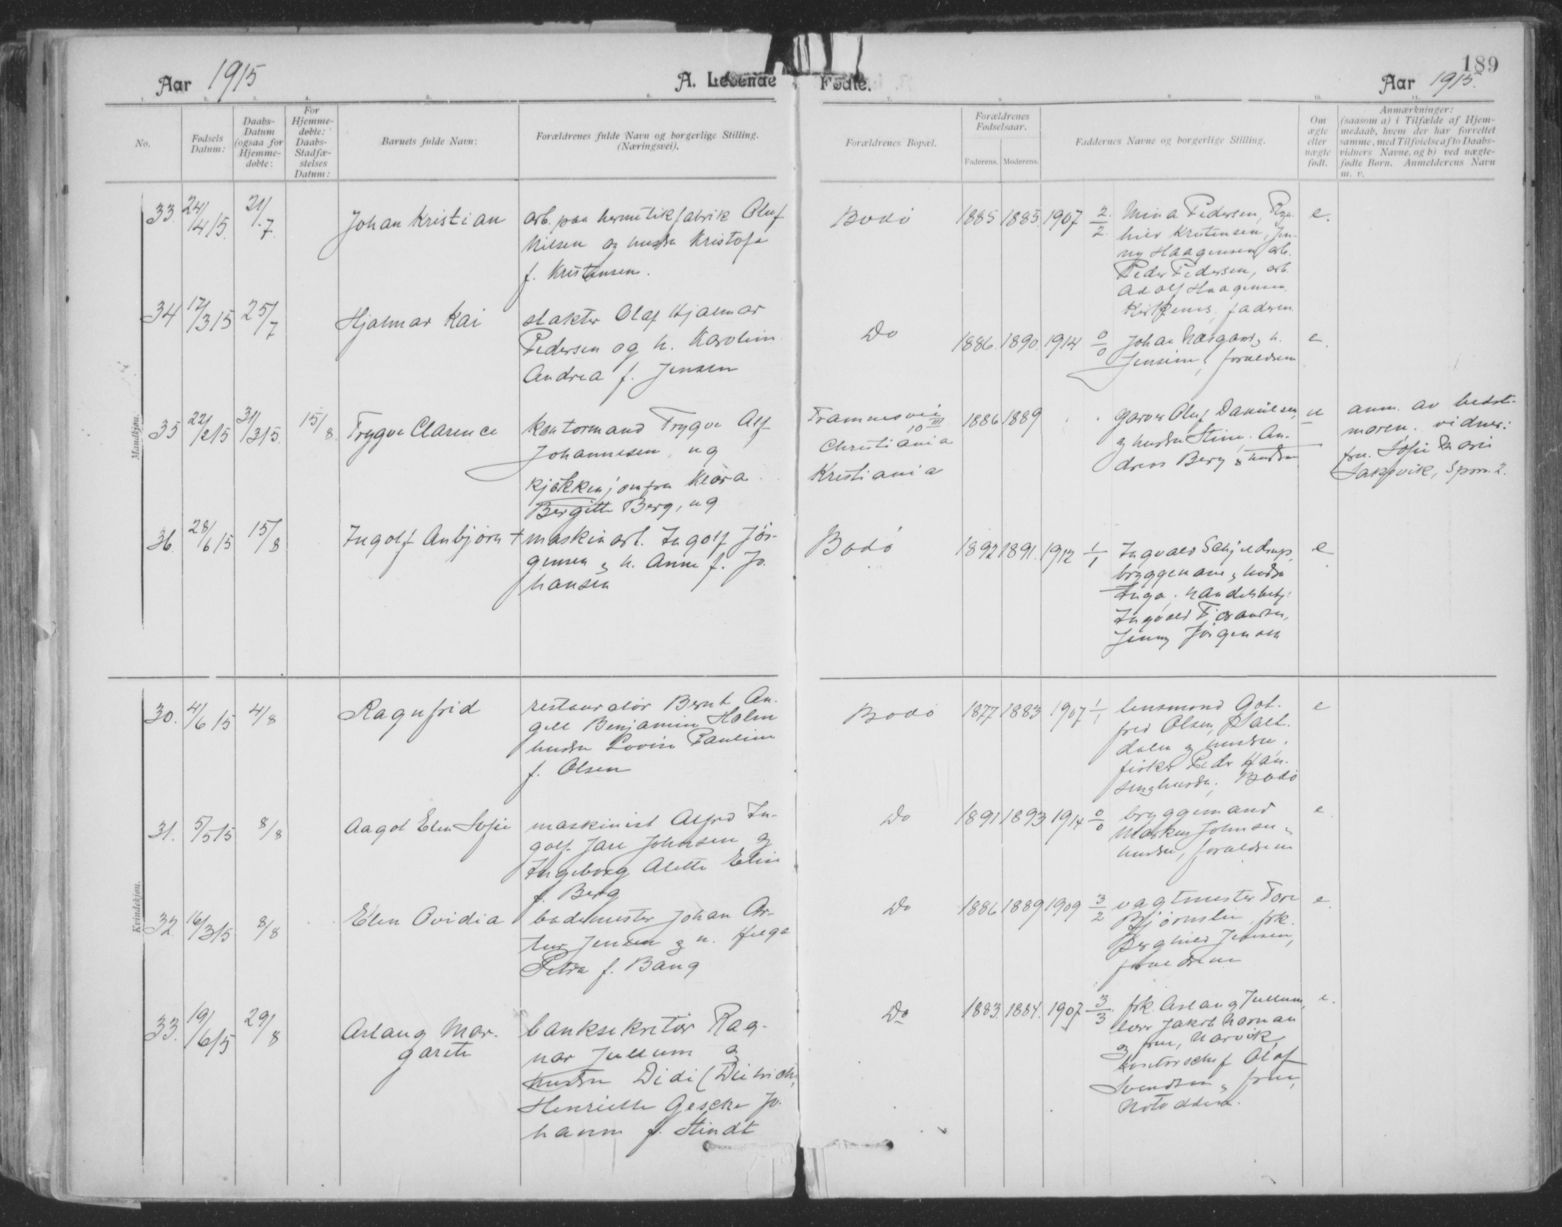 189
Aar 1915 A. Levende Fødte. Aar 1915.
No.
Fødsels Datum:
Daabs-Datum (ogsaa for Hjemme-døbte:
For Hjemme-døbte: Daabs-Stadfæ-stelses Datum:
Barnets fulde Navn:
Forældrenes fulde Navn og borgerlige Stilling.
(Næringsvei).
Forældrenes Bopæl.
Forældrenes Fødselsaar.
Faderens. Moderens.
Faddernes Navne og borgerlige Stilling.
Om ægte eller uægte født.
Anmærkninger:
(saasom a) i Tilfælde af Hjem-
medaab, hvem der har forrettet
samme, med Tilføielse af to Daabs-
vidners Navne, og b) ved uægte-
fødte Børn. Anmelderens Navn
m. v.
Mandkjøn.
33 24/4 15. 21/7. Johan Kristian
arb. paa hermetikfabrik Oluf
Nilsen og hustru Kristofa
f. Kristensen.
Bodø 1885 1885 1907 2/2
Mina Pedersen, Rag-
hild Kristensen, Jen-
ny Haagensen, arb.
Peder Pedersen, arb.
Adolf Haagensen
Kirkenes, faderen
e.
34 17/3 15 25/7 Hjalmar Kai
slakter Olaf Hjalmar
Pedersen og h. Karoline
Andrea f. Jensen
Do 1886 1890 1914 0/0
Johan Norgaard, h.
Jensine, forældrene
e.
35 22/2 15 31/3 15. 15/8. Trygve Clarence
kontormand Trygve Alf
Johannesen, ug
kjøkkenjomfru Klara
Bergitte Berg, ug
Framnesvei
10 III
Christiania
Kristiania
1886 1889
garver Oluf Danielsen
og hustru Stine. An-
dreas Berg & hustru
u
anm. av bedste-
moren. vidner:
fru. Sofie Marie
36. 28/6 15 15/8 Ingolf Anbjørn +
maskinarb. Ingolf Jør-
gensen & h. Anne f. Jo-
hansen
Bodø 1892 1891. 1912 1/1
Ingvald Schjeldrup,
bryggemand & hustru
Inga. handelsbetj.
Ingvald
Jenny Jørgensen
e
Kvindekjøn.
30. 4/6 15 4/8 Ragnfrid
restauratør Bernt An-
gell Benjamin Holm
hustru Lovise Pauline
f. Olsen
Bodø 1877 1883 1907 1/1
lensmand Got-
fred Olsen, Salt-
dalen & hustru.
fisker Peder Han-
sen & hustru, Bodø
e
31. 5/5 15 8/8 Aagot Elen Sofie
maskinist Alfred In-
golf Jare Johnsen og
Ingeborg Alette Eline
f. Berg
Do 1891 1893 1914 0/0
bryggemand
Markus Johnsen &
hustru, forældrene
e.
32 16/3 15 8/8 Elen Ovidia
bademester Johan Ar-
tur Jensen & h. Helga
Petra f. Bang
Do 1886 1889 1909 3/2
vagtmester Tore
Bjørnslev, frk.
Berghild Jensen,
forældrene
e.
33. 19/6 15 29/8 Aslaug Mar-
garete
banksekretær Rag-
nar Jullum og
hustru Didi (Didrich
Henriette Gescke Jo-
hanne f. Stindt
Do 1883. 1884. 1907 3/3
frk. Aslaug Jullum,
Jakob Norman
& frue, Narvik
kontorschef Olaf
Svendsen & frue,
Notodden.
e.